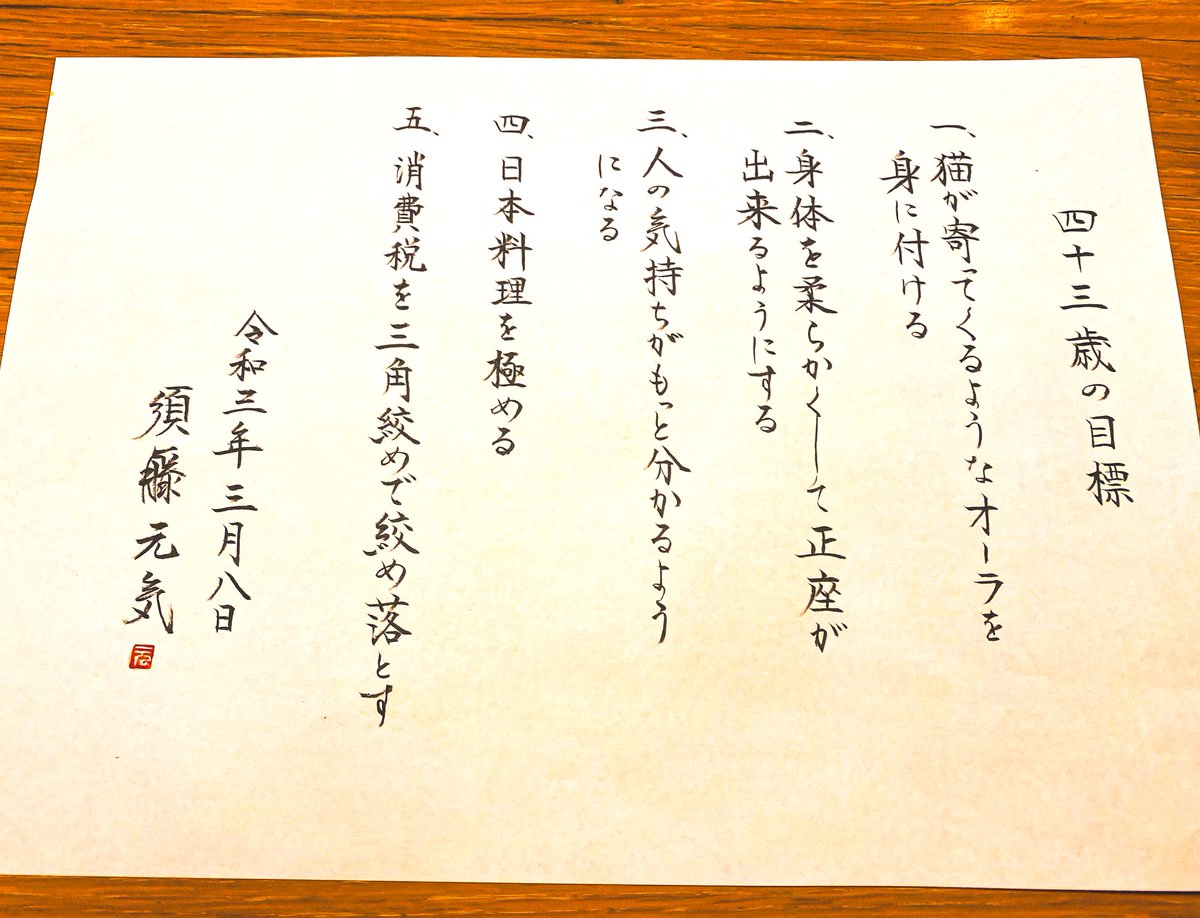 四十三歳の目標
一、猫が寄ってくるようなオーラを
身に付ける
二、身体を柔らかくして正座が
出来るようにする
三、人の気持ちがもっと分かるよう
になる
四、日本料理を極める
五、消費税を三角絞めで絞め落とす
令和三年三月八日
須藤元気
元